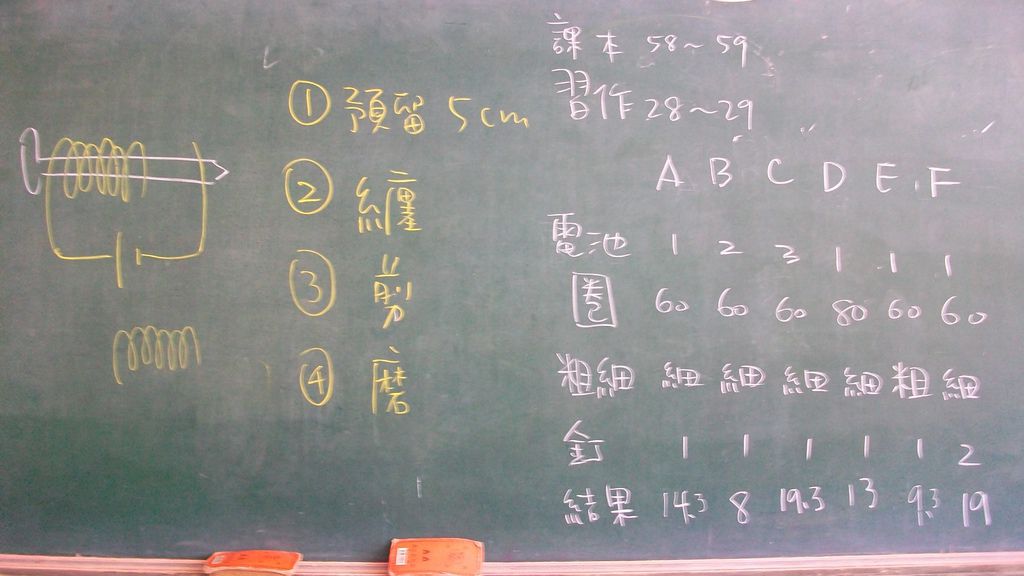 ① 預留 5cm
② 纏
③ 剪
④ 磨
課本 58~59
習作 28~29
A B C D E F
電池 1 2 3 1 1 1
圈 60 60 60 80 60 60
粗細 細 細 細 細 粗 細
釘 1 1 1 1 1 2
結果 14.3 8 19.3 13 9.3 19